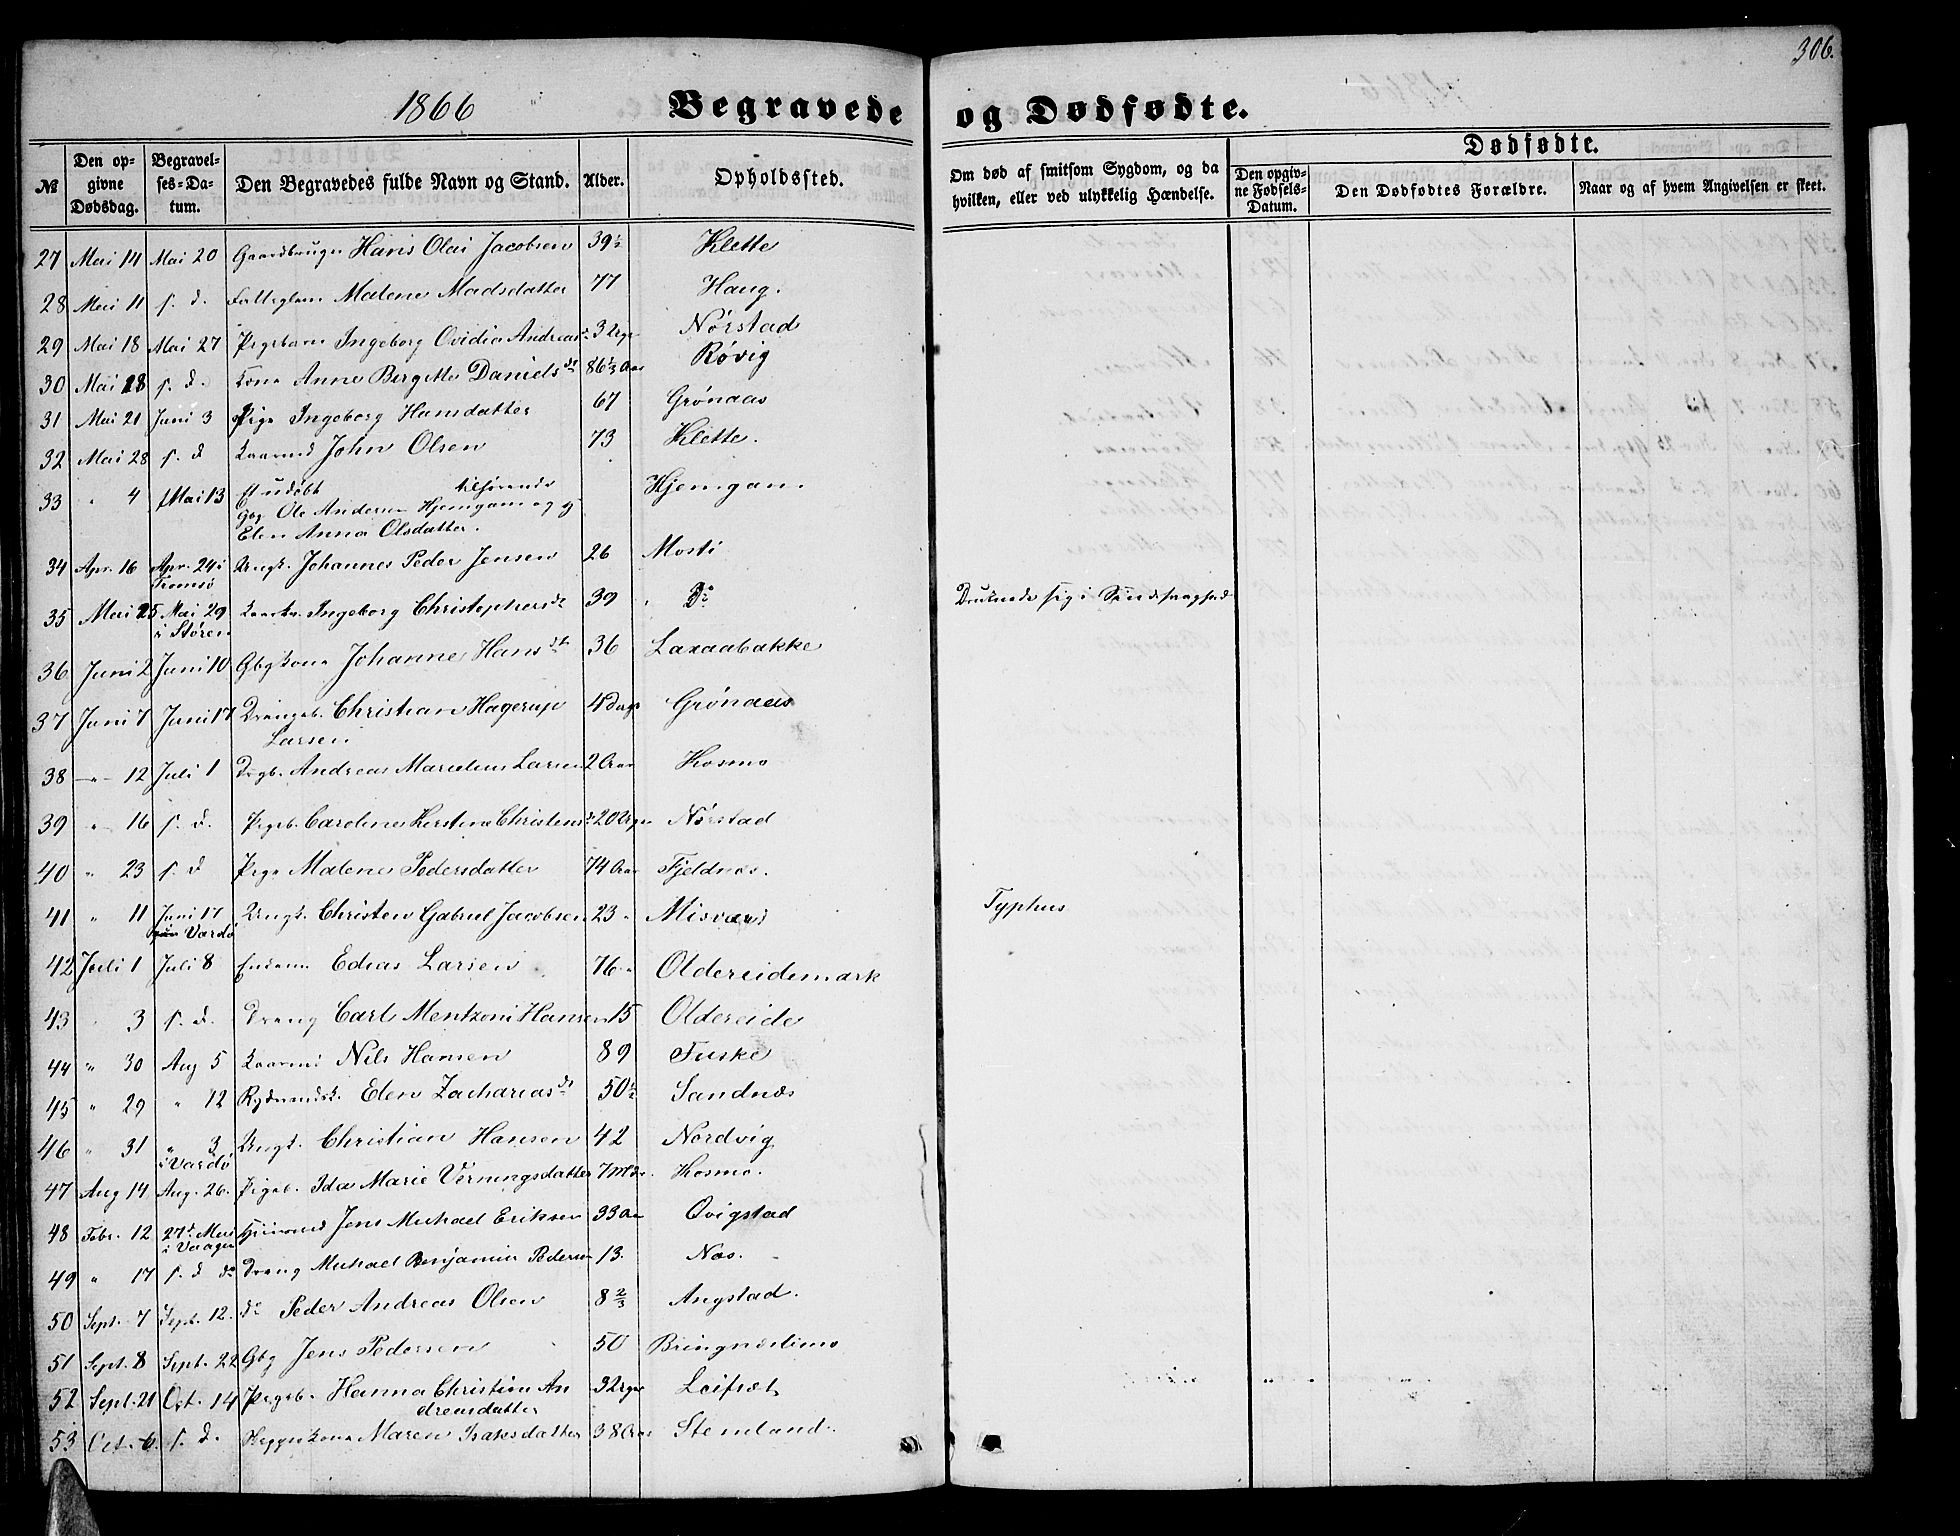 306.
1866 Begravede og Dødfødte.
Dødfødte.
№ Den opgivne Dødsdag. Begravelses-Datum. Den Begravedes fulde Navn og Stand. Alder. Opholdssted. Om død af smitsom Sygdom, og da hvilken, eller ved ulykkelig Hændelse. Den opgivne Fødsels-Datum. Den Dødfødtes Forældre. Naar og af hvem Angivelsen er skeet.
27 Mai 14 Mai 20 Hans Olai Jacobsen 39½ Klette
28 Mai 11 s. d. Malene Madsdatter 77 Haug.
29 Mai 18 Mai 27 Pigebarn Ingeborg Ovidia Andreasd 3 Uger Nørstad
30 Mai 18 s. d. Kone Anne Bergitte Daniels dr 86½ Aar Røvig
31 Mai 21 Juni 3 Pige Ingeborg Hansdatter 67 Grønaas
32 Mai 28 s. d Kaarmd John Olsen 73 Klette.
33 " 4 Mai 13 et udøbt tilhørende Hjemgam.
Gbg Ole Andersen Hjemgam og
Elen Anna Olsdatter.
34 Apr. 16 Apr. 24 i Ungk. Johannes Peder Jensen 26 Mosti
Tromsø
35 Mai 25 Mai 29 Ingeborg Christophers dr 39 " Do Druknede sig i
i Støren
36 Juni 2 Juni 10 Gbgkone Johanne Hans dtr 36 Laxaabakke
37 Juni 7 Juni 17 Drengeb. Christian Hagerup 4 Dage Grønaas
Larsen
38 -"- 12 Juli 1 Drgb. Andreas Larsen 2 Aar Kosmo
39 " 16 s. d. Pigeb. Caroline Kerstine Christens d 20 Uger Nørstad
40 " 23 s. d Pige Malene Pedersdatter 74 Aar Fjeldnæs.
41 " 11 Juni 17 Ungk. Christen Gabriel Jacobsen 23 " Misvær Typhus
Vardø
42 Juli 1 Juli 8 Edias Larsen 76 " Oldereidemark
43 " 3 s. d. Dreng Carl Mentzoni Hansen 15 Oldereide
44 " 30 Aug 5 Kaarmd Nils Hansen 89 Fuske
45 " 29 " 12 Elen Zacharias dr 50½ Sandnæs
46 " 31 " 3 Ungk. Christian Hansen 42 Nordvig
i Vardø
47 Aug 14 Aug. 26. Pigeb. Ida Marie Verningsdatter 7 Mdr. Kosmo.
48 Febr. 12 27d Mai Jens Michael Eriksen 33 Aar Øvigstad
i Vaagen
49 " 17 s. d do Dreng Michael Benjamin Pedersen 13. Næs.
50 Sept. 7 Septb. 12. do Peder Andreas Olsen 8 2/3 Angstad.
51 Sept. 8 Sept. 22 Gbg Jens Pedersen 50 Bringnæslimo
52 Sept. 21 Oct. 14 Pigeb. Hanna Christine An 3 Uger Leifset
dreasdatter
53 Oct. 6. s. d. Maren Isaksdatter 38 Aar Stemland.